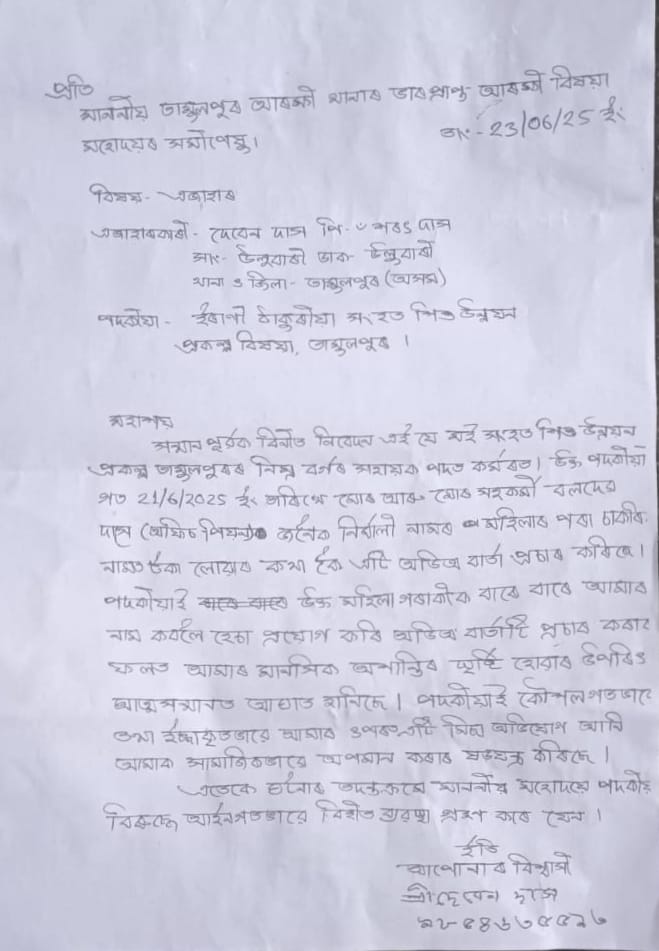 প্ৰতি
মাননীয় তামুলপুৰ আৰক্ষী থানাৰ ভাৰপ্ৰাপ্ত আৰক্ষী বিষয়া
মহোদয়ৰ সমীপেষু।
তাং- 23/06/25 ইং
বিষয়- এজাহাৰ
এজাহাৰকাৰী- দেবেন দাস পি- ৺শৰৎ দাস
সাং- উলুবাৰী ডাক- উলুবাৰী
থানা ও জিলা- তামুলপুৰ (অসম)
পদকীয়া- ইৰাণী ঠাকুৰীয়া সংহত শিশু উন্নয়ন
প্ৰকল্প বিষয়া, তামুলপুৰ।
মহাশয়
সন্মান পূৰ্বক বিনীত নিবেদন এই যে মই সংহত শিশু উন্নয়ন
প্ৰকল্প তামুলপুৰৰ নিম্ন বৰ্গৰ সহায়ক পদত কৰ্মৰত। উক্ত পদকীয়া
গত 21/6/2025 ইং তাৰিখে মোৰ আৰু মোৰ সহকৰ্মী বলদেৱ
দাসে (অফিচ পিয়ন) জনৈক নিৰ্মালী নামৰ মহিলাৰ পৰা চাকৰি
নামত টকা লোৱাৰ কথা কৈ এটি অডিঅ বাৰ্তা প্ৰচাৰ কৰিছে।
পদকীয়াই উক্ত মহিলাগৰাকীক বাৰে বাৰে আমাৰ
নাম কবলৈ হেচা প্ৰয়োগ কৰি অডিঅ বাৰ্তাটি প্ৰচাৰ কৰাৰ
ফলত আমাৰ মানসিক অশান্তিৰ সৃষ্টি হোৱাৰ উপৰিও
আত্মসন্মানত আঘাত হানিছে। পদকীয়াই কৌশলগতভাৱে
তথা ইচ্ছাকৃতভাৱে আমাৰ ওপৰত এটি মিছা অভিযোগ আনি
আমাক সামাজিকভাৱে অপমান কৰাৰ ষড়যন্ত্ৰ কৰিছে।
এতেকে ঘটনাৰ তদন্তক্ৰমে মাননীয় মহোদয়ে পদকীয়াৰ
বিৰুদ্ধে আইনগতভাৱে বিহীত ব্যৱস্থা গ্ৰহণ কৰে যেন।
ইতি
আপোনাৰ বিশ্বাসী
শ্ৰীদেবেন দাস